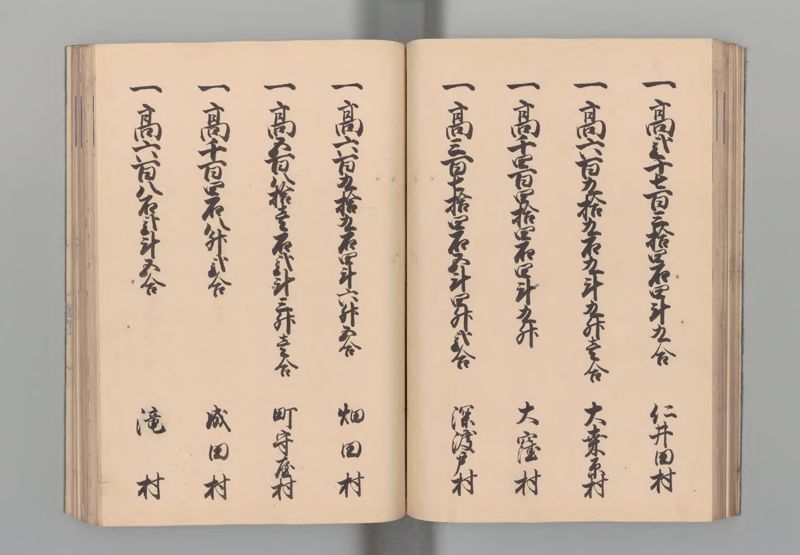 一高弐千七百三拾四石四斗九合 仁井田村
一高六百九拾九石九斗九升壱合 大桑原村
一高千四百四拾四石四斗九升 大窪村
一高三百七拾四石五斗四升弐合 深渡戸村
一高六百九拾九石四斗六升五合 畑田村
一高五百八拾壱石弐斗三升壱合 町守屋村
一高千百四石八升弐合 成田村
一高六百八石弐斗五合 滝村